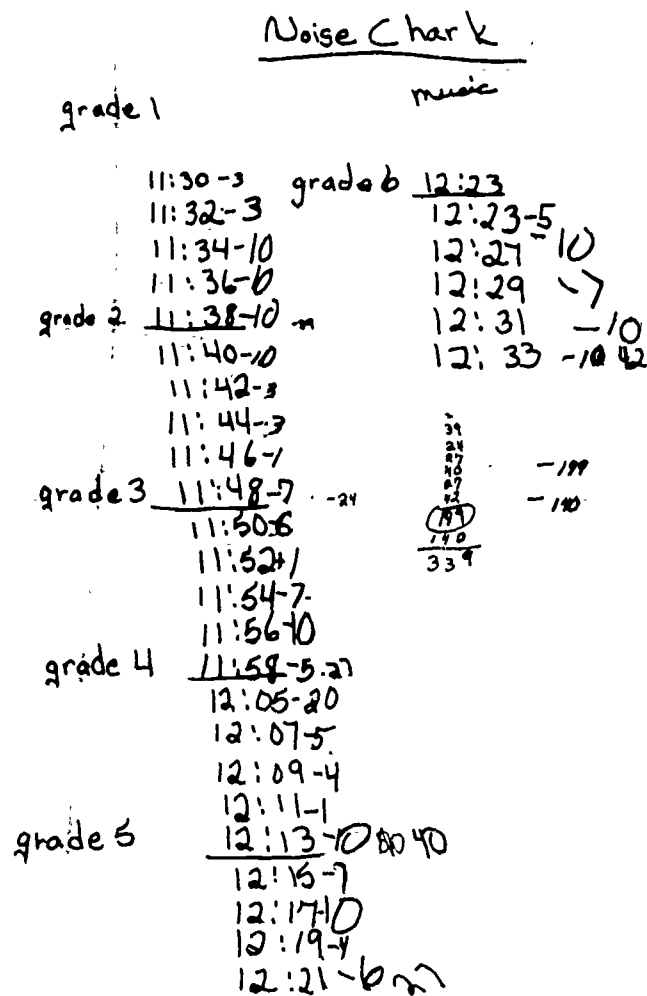 Noise Chark
music
grade 1
11:30-3
11:32-3
11:34-10
11:36-10
grade 2 11:38-10
11:40-10
11:42-3
11:44-3
11:46-1
grade 3 11:48-7 -24
11:50-6
11:52-1
11:54-7
11:56-10
grade 4 11:58-5 27
12:05-20
12:07-5
12:09-4
12:11-1
grade 5 12:13-10 40
12:15-7
12:17-10
12:19-4
12:21-6 27
grade 6 12:23
12:23-5
12:27-10
12:29-7
12:31-10
12:33-10 42
39
24
27
40
27
42
199 -199
140 -140
339